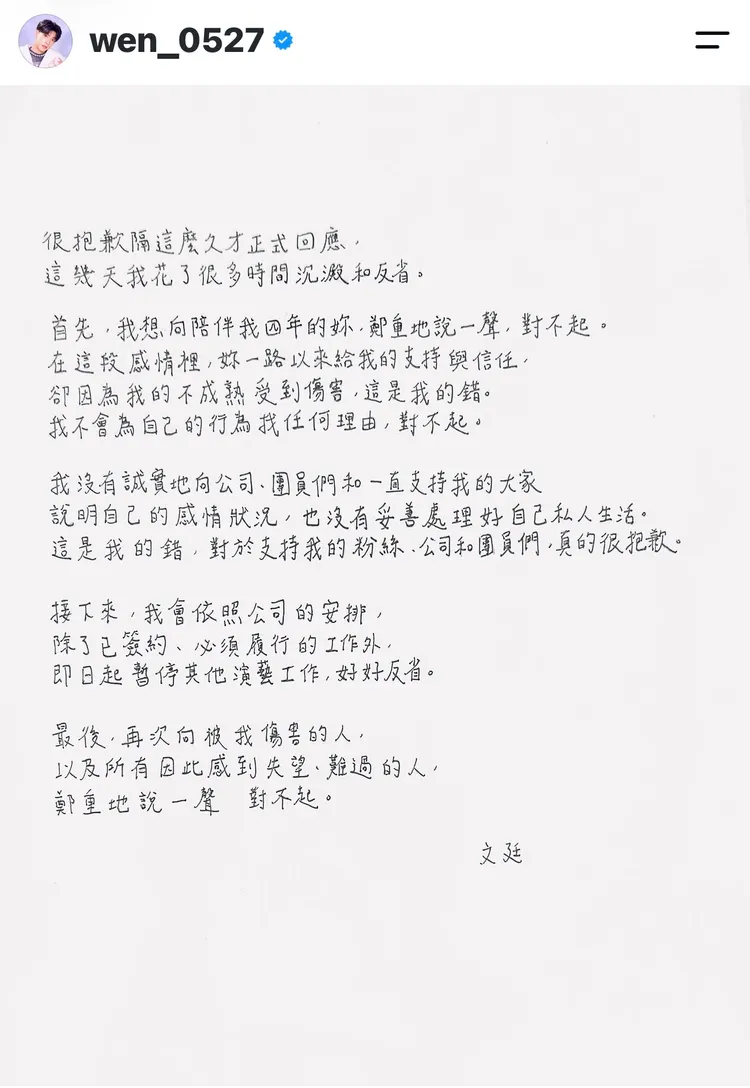 wen_0527
很抱歉隔這麼久才正式回應，
這幾天我花了很多時間沉澱和反省。
首先，我想向陪伴我四年的妳，鄭重地說一聲，對不起。
在這段感情裡，妳一路以來給我的支持與信任，
卻因為我的不成熟受到傷害，這是我的錯。
我不會為自己的行為找任何理由，對不起。
我沒有誠實地向公司、團員們和一直支持我的大家
說明自己的感情狀況，也沒有妥善處理好自己私人生活。
這是我的錯，對於支持我的粉絲、公司和團員們，真的很抱歉。
接下來，我會依照公司的安排，
除了已簽約、必須履行的工作外，
即日起暫停其他演藝工作，好好反省。
最後，再次向被我傷害的人，
以及所有因此感到失望、難過的人，
鄭重地說一聲 對不起。
文廷